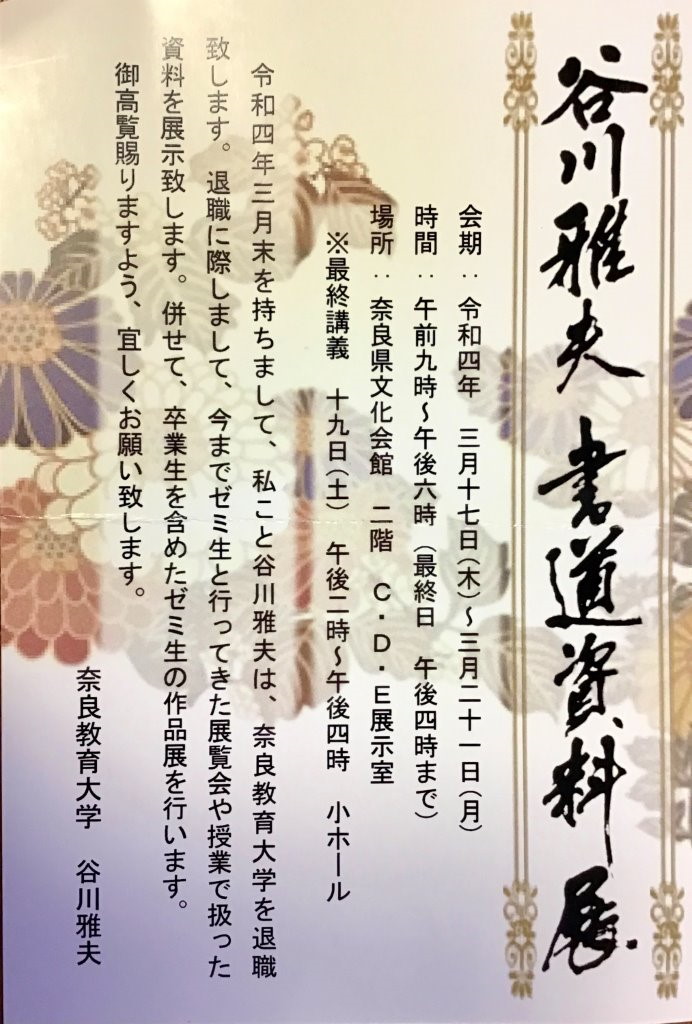 谷川雅夫 書道資料展
会期：令和四年 三月十七日(木)～三月二十一日(月)
時間：午前九時～午後六時（最終日 午後四時まで）
場所：奈良県文化会館 二階 Ｃ・Ｄ・Ｅ展示室
※最終講義 十九日(土) 午後二時～午後四時 小ホール
令和四年三月末を持ちまして、私こと谷川雅夫は、奈良教育大学を退職
致します。退職に際しまして、今までゼミ生と行ってきた展覧会や授業で扱った
資料を展示致します。併せて、卒業生を含めたゼミ生の作品展を行います。
御高覧賜りますよう、宜しくお願い致します。
奈良教育大学 谷川雅夫